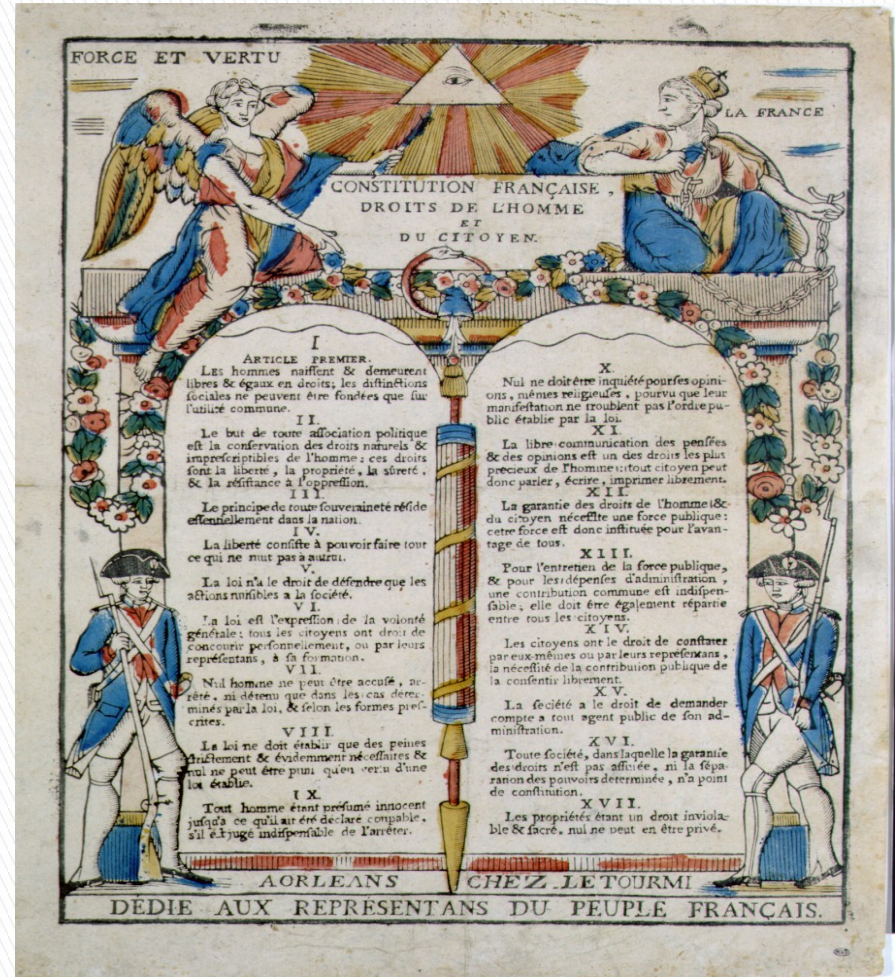 FORCE ET VERTU
LA FRANCE
CONSTITUTION FRANÇAISE,
DROITS DE L'HOMME
ET
DU CITOYEN.
I
ARTICLE PREMIER.
Les hommes naissent & demeurent
libres & égaux en droits; les distinctions
sociales ne peuvent être fondées que sur
l'utilité commune.
II.
Le but de toute association politique
est la conservation des droits naturels &
imprescriptibles de l'homme: ces droits
sont la liberté, la propriété, la sûreté,
& la résistance à l'oppression.
III.
Le principe de toute souveraineté réside
essentiellement dans la nation.
IV.
La liberté consiste à pouvoir faire tout
ce qui ne nuit pas à autrui.
V.
La loi n'a le droit de défendre que les
actions nuisibles a la société.
VI.
La loi est l'expression de la volonté
générale: tous les citoyens ont droit de
concourir personnellement, ou par leurs
représentans, à sa formation.
VII.
Nul homme ne peut être accusé, ar-
rêté, ni détenu que dans les cas déter-
minés par la loi, & selon les formes pres-
crites.
VIII.
La loi ne doit établir que des peines
strictement & évidemment nécessaires &
nul ne peut être puni qu'en vertu d'une
loi établie.
IX.
Tout homme étant présumé innocent
jusqu'a ce qu'il ait été déclaré coupable,
s'il est jugé indispensable de l'arrêter.
X.
Nul ne doit être inquiété pour ses opini-
ons, mêmes religieuses, pourvu que leur
manifestation ne troublent pas l'ordre pu-
blic établie par la loi.
XI.
La libre communication des pensées
& des opinions est un des droits les plus
precieux de l'homme: tout citoyen peut
donc parler, écrire, imprimer librement.
XII.
La garantie des droits de l'homme &
du citoyen nécessite une force publique:
cette force est donc instituée pour l'avan-
tage de tous.
XIII.
Pour l'entretien de la force publique,
& pour les dépenses d'administration,
une contribution commune est indispen-
sable; elle doit être également répartie
entre tous les citoyens.
XIV.
Les citoyens ont le droit de constater
par eux-mêmes ou par leurs représentans,
la nécessité de la contribution publique de
la consentir librement.
XV.
La société a le droit de demander
compte a tout agent public de son ad-
ministration.
XVI.
Toute société, dans laquelle la garantie
des droits n'est pas assurée, ni la sépa-
ration des pouvoirs determinée, n'a point
de constitution.
XVII.
Les propriétés étant un droit inviola-
ble & sacré, nul ne peut en être privé.
A ORLEANS CHEZ LETOURMI
DÉDIE AUX REPRÉSENTANS DU PEUPLE FRANÇAIS.